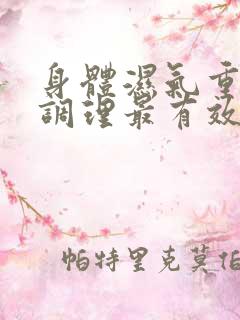 身體濕氣重
調理最有效
帕特里克莫伯